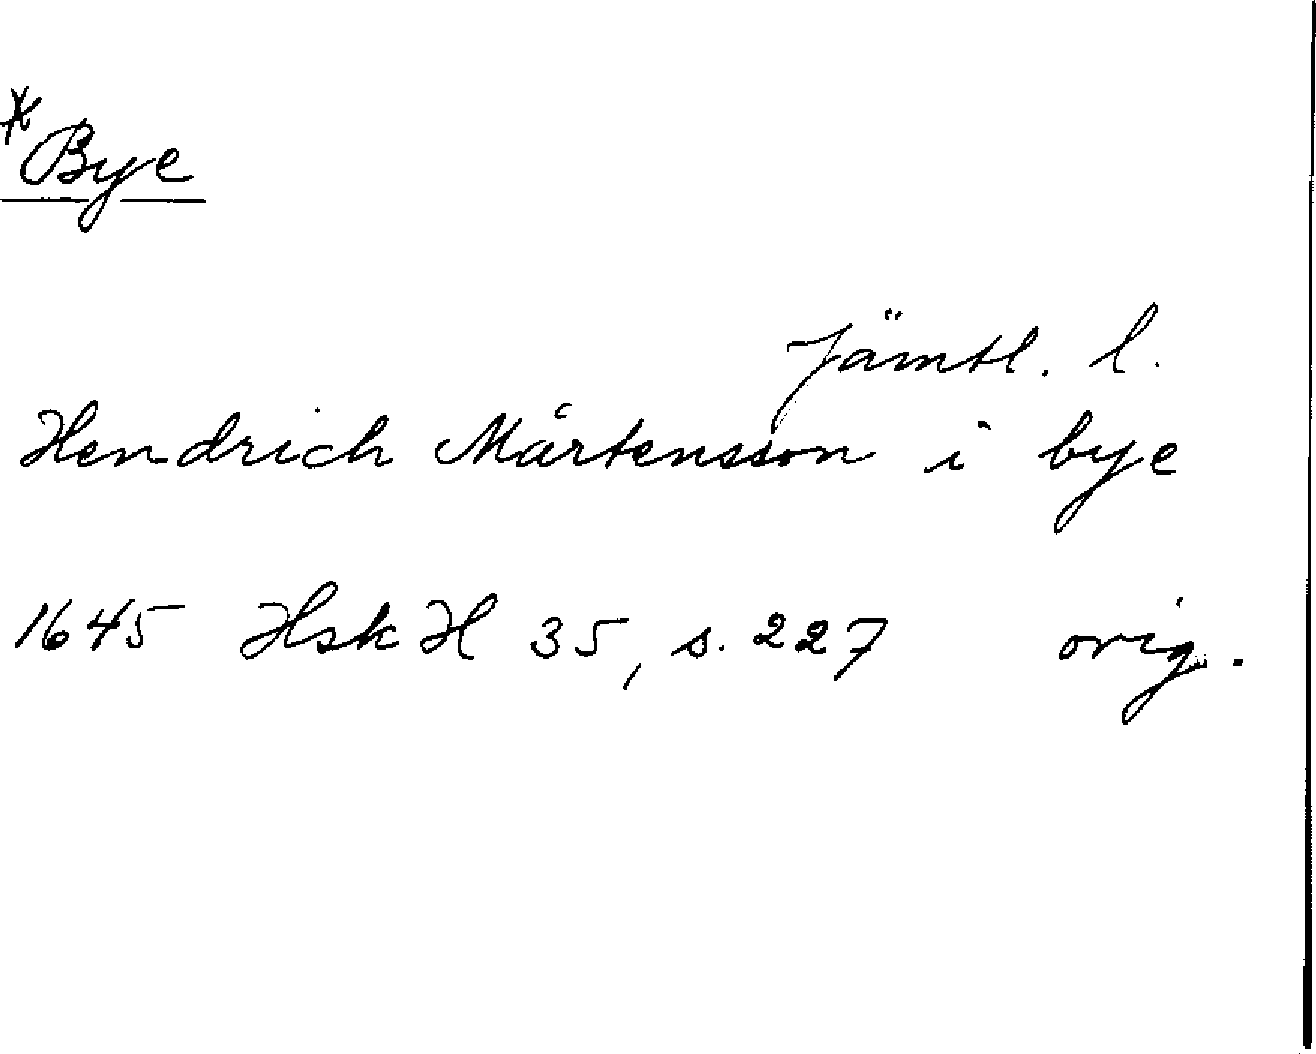 *Bye
Jämtl. l.
Hendrich Mårtensson i bye
1645 HskH 35, s. 227 orig.